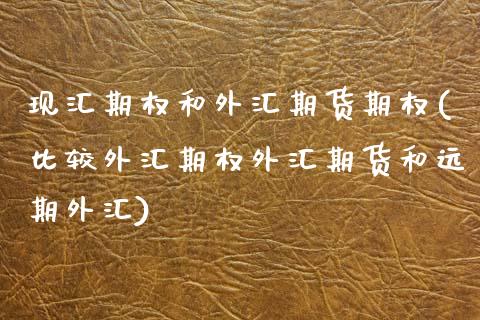 现汇期权和外汇期货期权(
比较外汇期权外汇期货和远
期外汇)